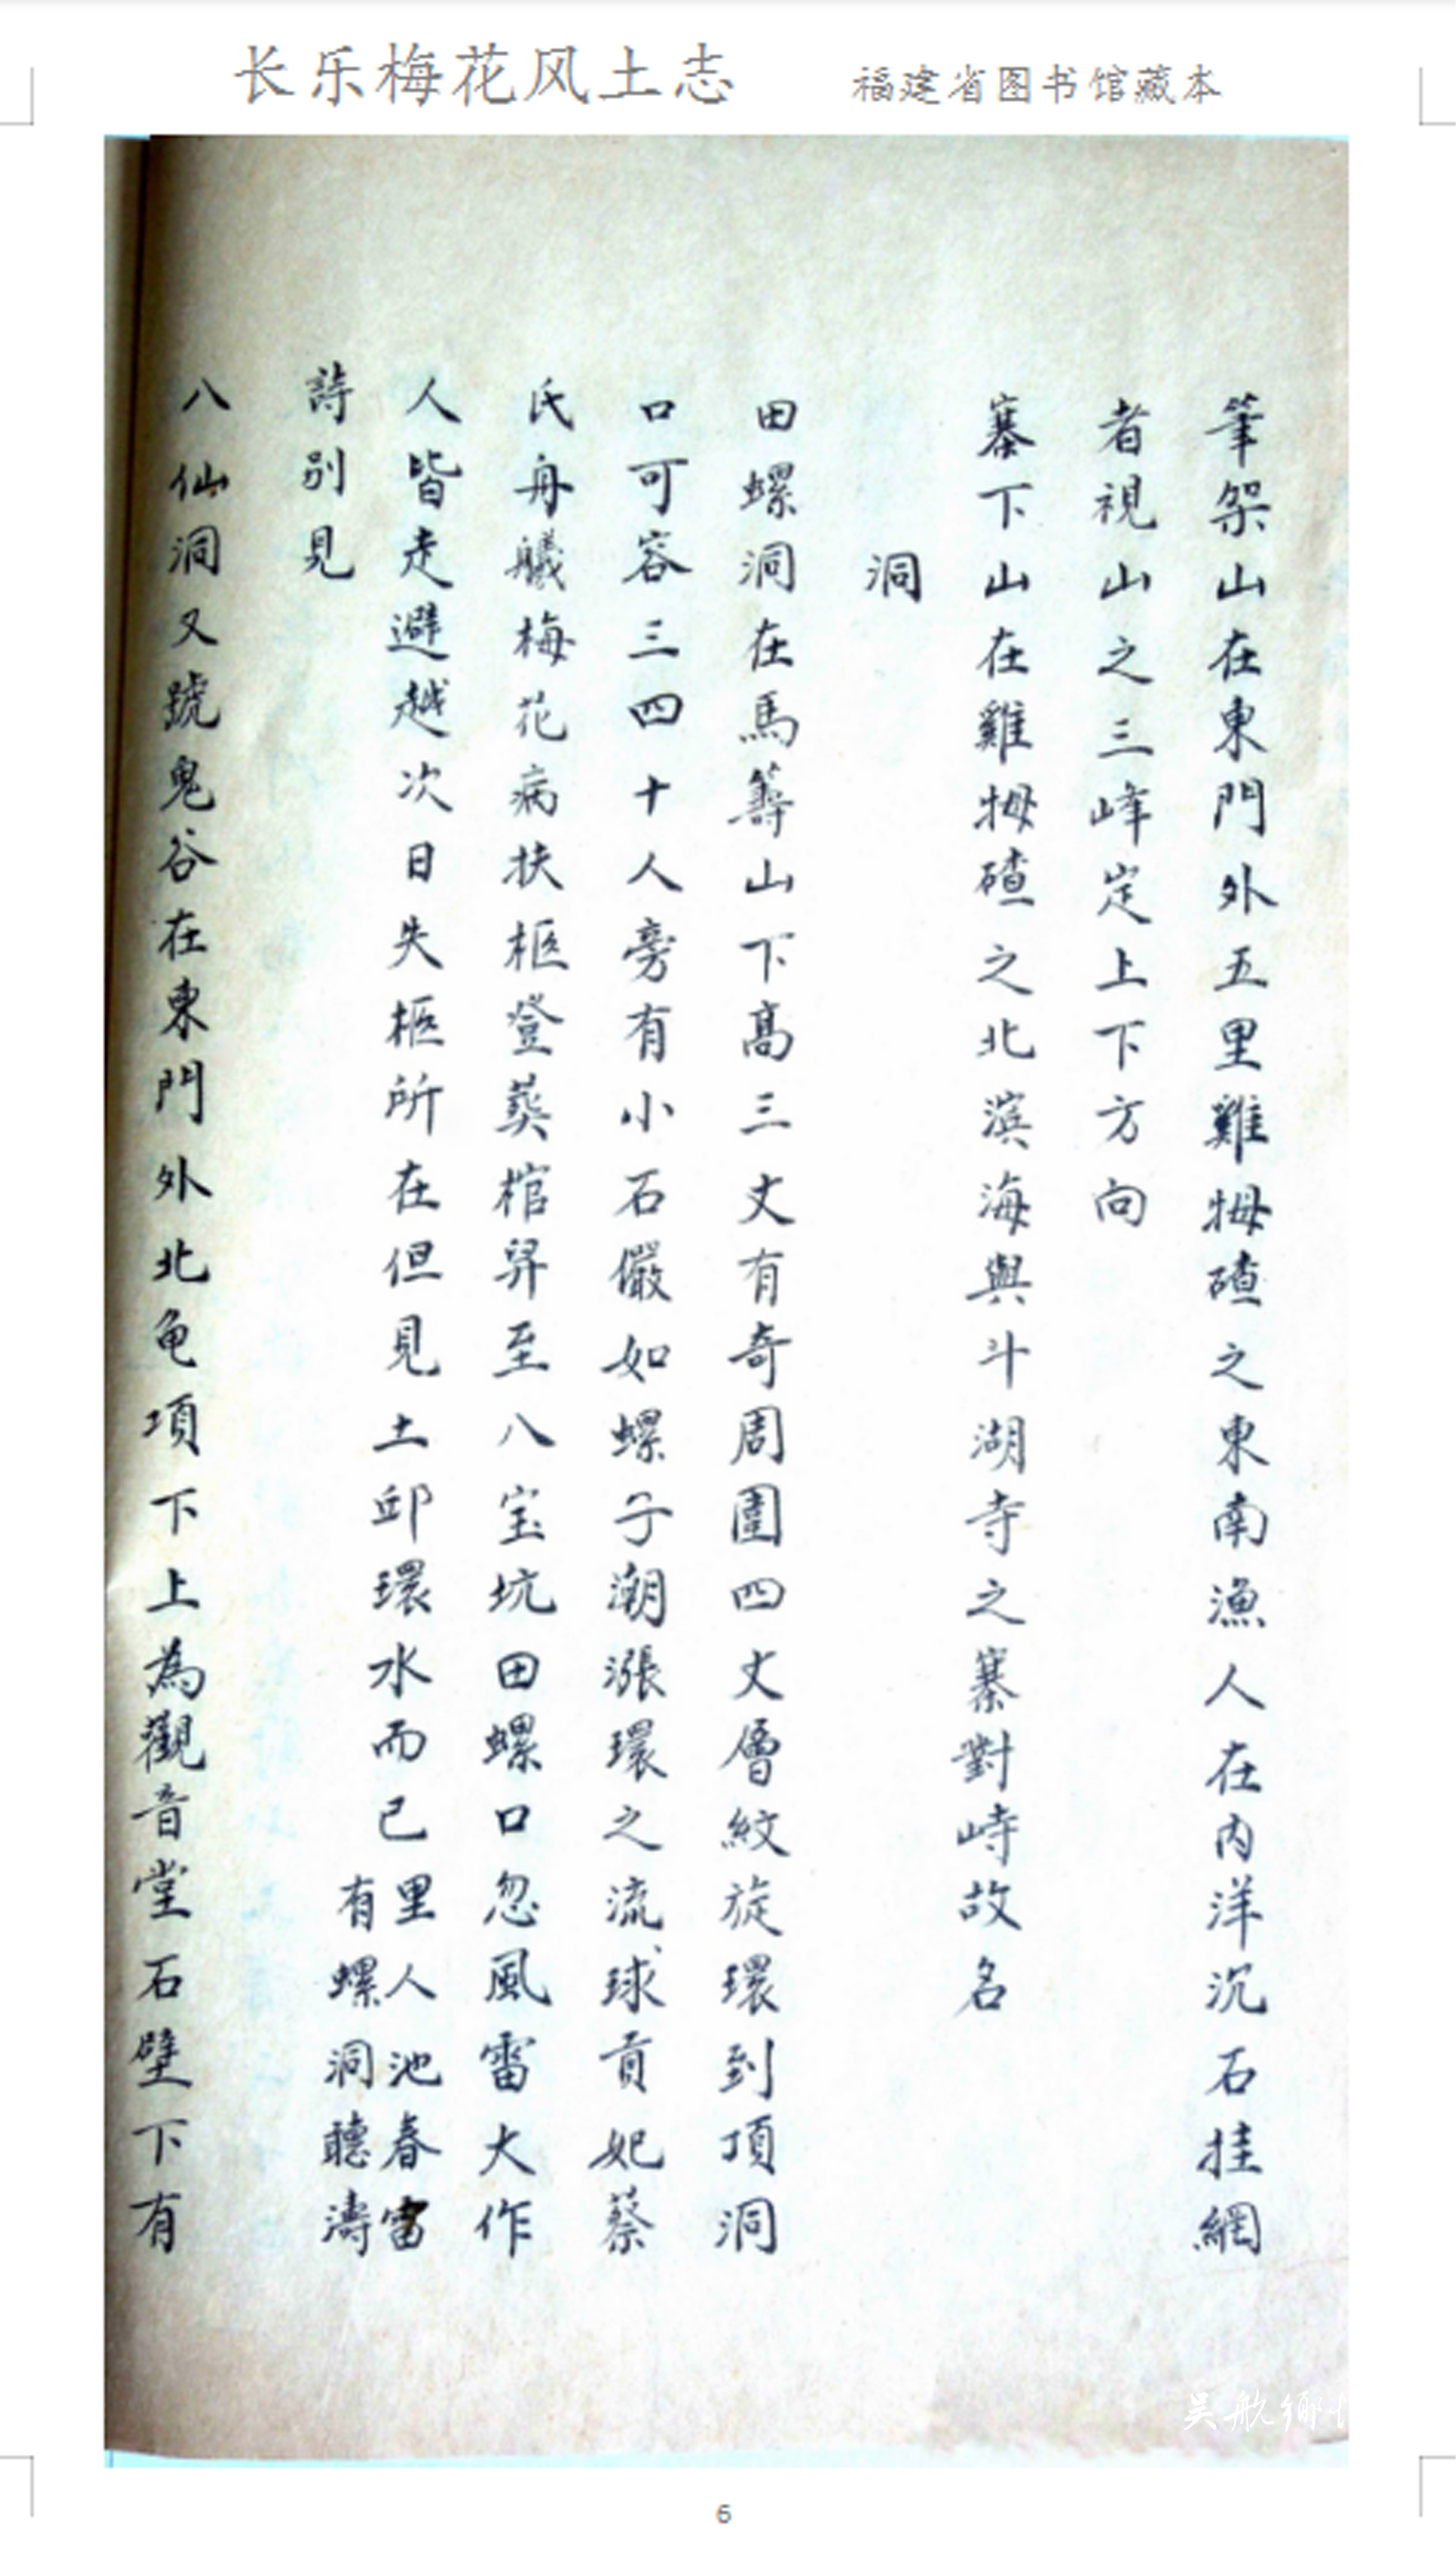 长乐梅花风土志 福建省图书馆藏本
筆架山在東門外五里雞拇碴之東南漁人在内洋沉石挂網
者視山之三峰定上下方向
寨下山在雞拇碴之北滨海與斗湖寺之寨對峙故名
洞
田螺洞在馬籌山下高三丈有奇周圍四丈層紋旋環到頂洞
口可容三四十人旁有小石儼如螺子潮漲環之流球貢妃蔡
氏舟艤梅花病扶柩登葬棺舁至八宝坑田螺口忽風雷大作
人皆走避越次日失柩所在但見土邱環水而已里人池春雷
有螺洞聽濤
詩别見
八仙洞又號鬼谷在東門外北龟項下上為觀音堂石壁下有
吴航鄉
6